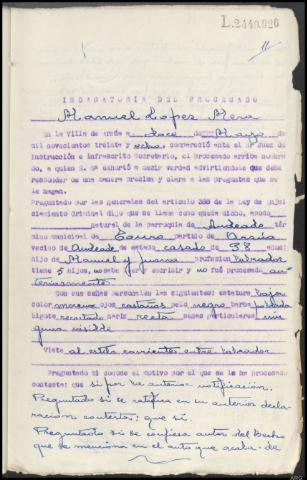 L.2440.926
11
INDAGATORIA DEL PROCESADO
Manuel Lopez Mera
En la Villa de Arzúa a doce de Mayo de
mil novecientos treinta y ocho, compareció ante el Sr Juez de
Instrucción e infrascrito Secretario, el procesado arriba nombra-
do, a quien S. Sª exhortó a decir verdad advirtiéndole que debe
responder de una manera precisa y clara a las preguntas que se
le hagan.
Preguntado por las generales del artículo 388 de la Ley de Enjui
ciamiento Criminal dijo que se llama como queda dicho, apodo
natural de la parroquia de Andeade tér
mino municipal de Touro partido de Arzúa
vecino de Andeade de estado casado de 38 años:
hijo de Manuel y Juana profesion labrador
tiene 5 hijos, no sabe leer y escribir y no fué procesado an
teriormente.
Son sus señas personales las siguientes: estatura baja
color moreno ojos castaños pelo negro barba poblada
bigote recortado nariz recta señas particulares nin
guna visible
Viste al estilo corriente entre labrador
Preguntado si conoce el motivo por el que se le ha procesado
contesta: que si por la anterior notificación.
Preguntado si se ratifica en su anterior decla-
ración contesta: que si.
Preguntado si se confiesa autor del hecho
que se menciona en el auto que acaba de